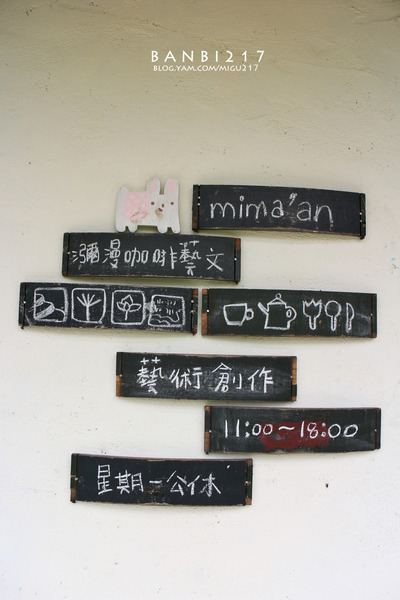 BANBI217
BLOG.YAM.COM/MIGU217
mima'an
彌漫咖啡藝文
藝術創作
11:00～18:00
星期一公休